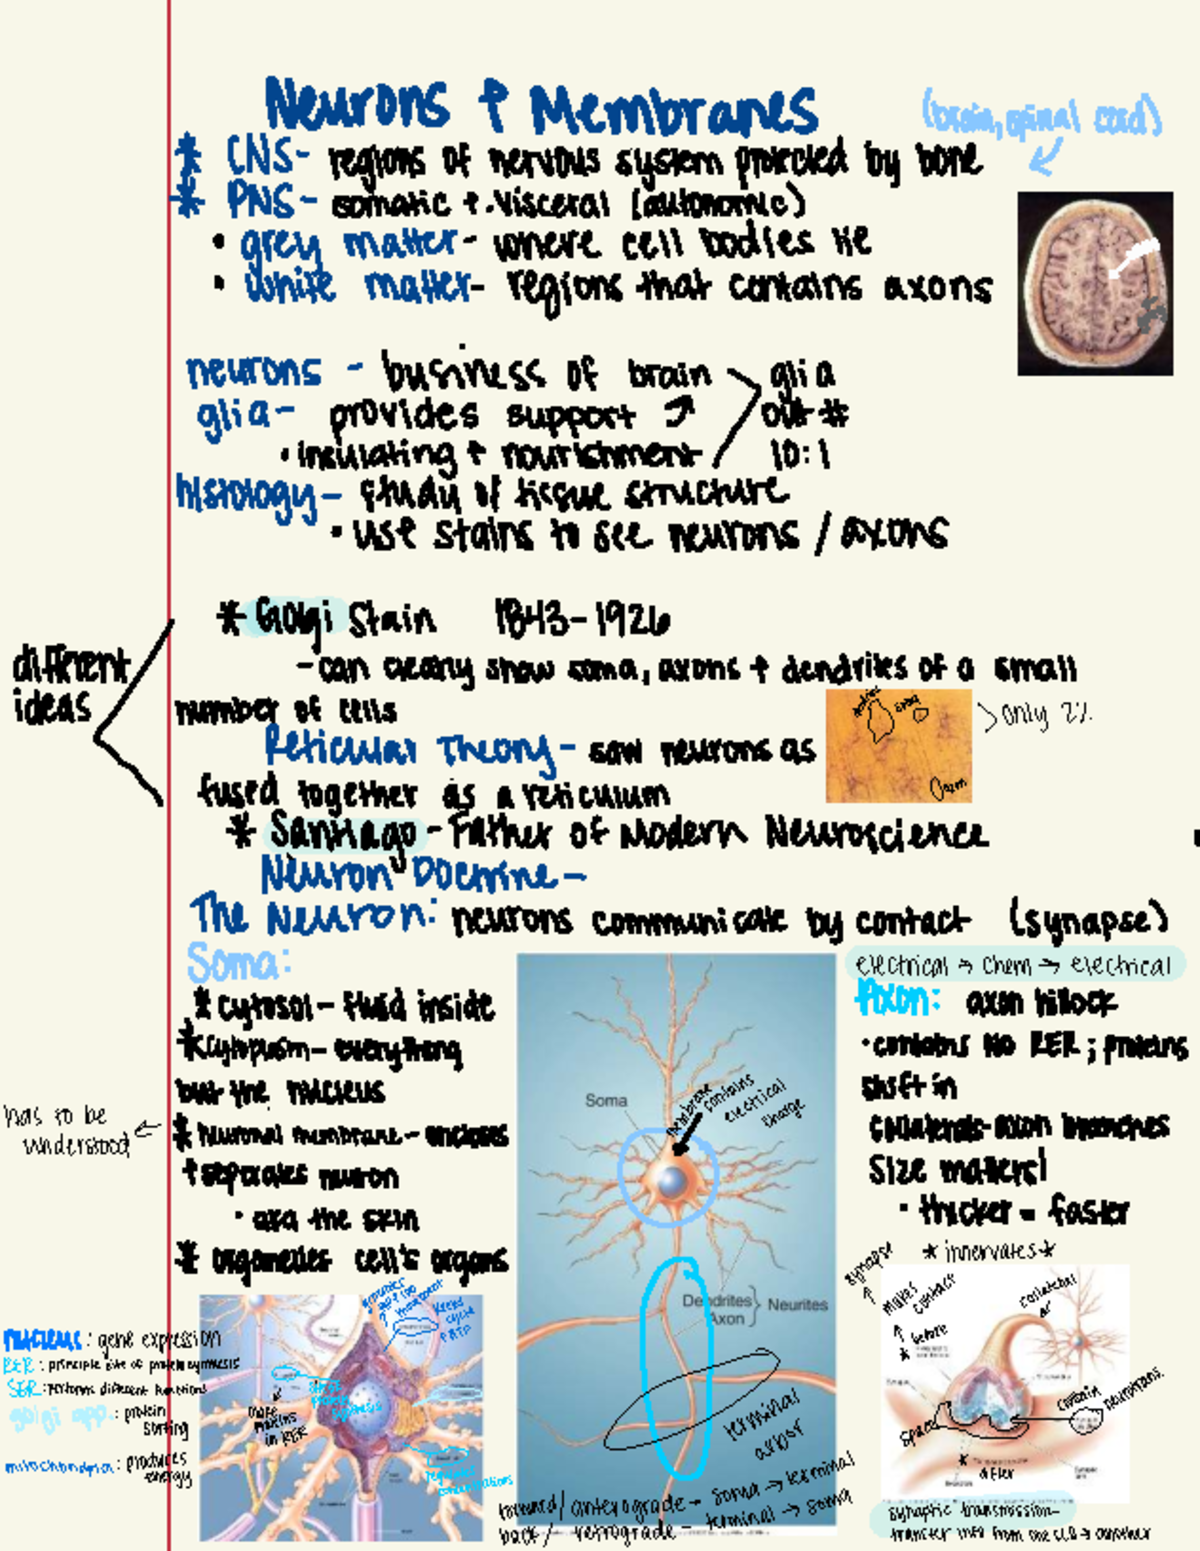 Neurons + Membranes
(brain, spinal cord)
* CNS- regions of nervous system protected by bone
* PNS- somatic + visceral (autonomic)
• grey matter- where cell bodies lie
• white matter- regions that contains axons
neurons - business of brain
glia- provides support
• insulating + nourishment
glia
out #
10:1
histology- study of tissue structure
• use stains to see neurons / axons
different
ideas
* Golgi Stain 1843-1926
- can clearly show soma, axons + dendrites of a small
number of cells
only 2%
Reticular Theory- saw neurons as
fused together as a reticulum
* Santiago- Father of Modern Neuroscience
Neuron Doctrine-
The Neuron: neurons communicate by contact (synapse)
electrical → chem → electrical
Soma:
* cytosol- fluid inside
* cytoplasm- everything
but the nucleus
* Neuronal membrane- encloses
+ seperates neuron
• aka the skin
* organelles cell's organs
has to be
understood
Soma
membrane contains
electrical
charge
Dendrites
Axon
Neurites
terminal
arbor
forward/ anterograde- soma → terminal
back/ retrograde- terminal → soma
Axon: axon hillock
• contains NO RER; proteins
shift in
collaterals-axon branches
Size matters!
• thicker = faster
* innervates *
synapse
makes
contact
before
collateral
space
contain
neurotrans.
* after
synaptic transmission-
transfer info from one cell → another
nucleus: gene expression
RER: principle site of protein synthesis
SER: performs different functions
golgi app.: protein
sorting
mitochondria: produces
energy
more
proteins
in RER
Krebs
cycle
ATP